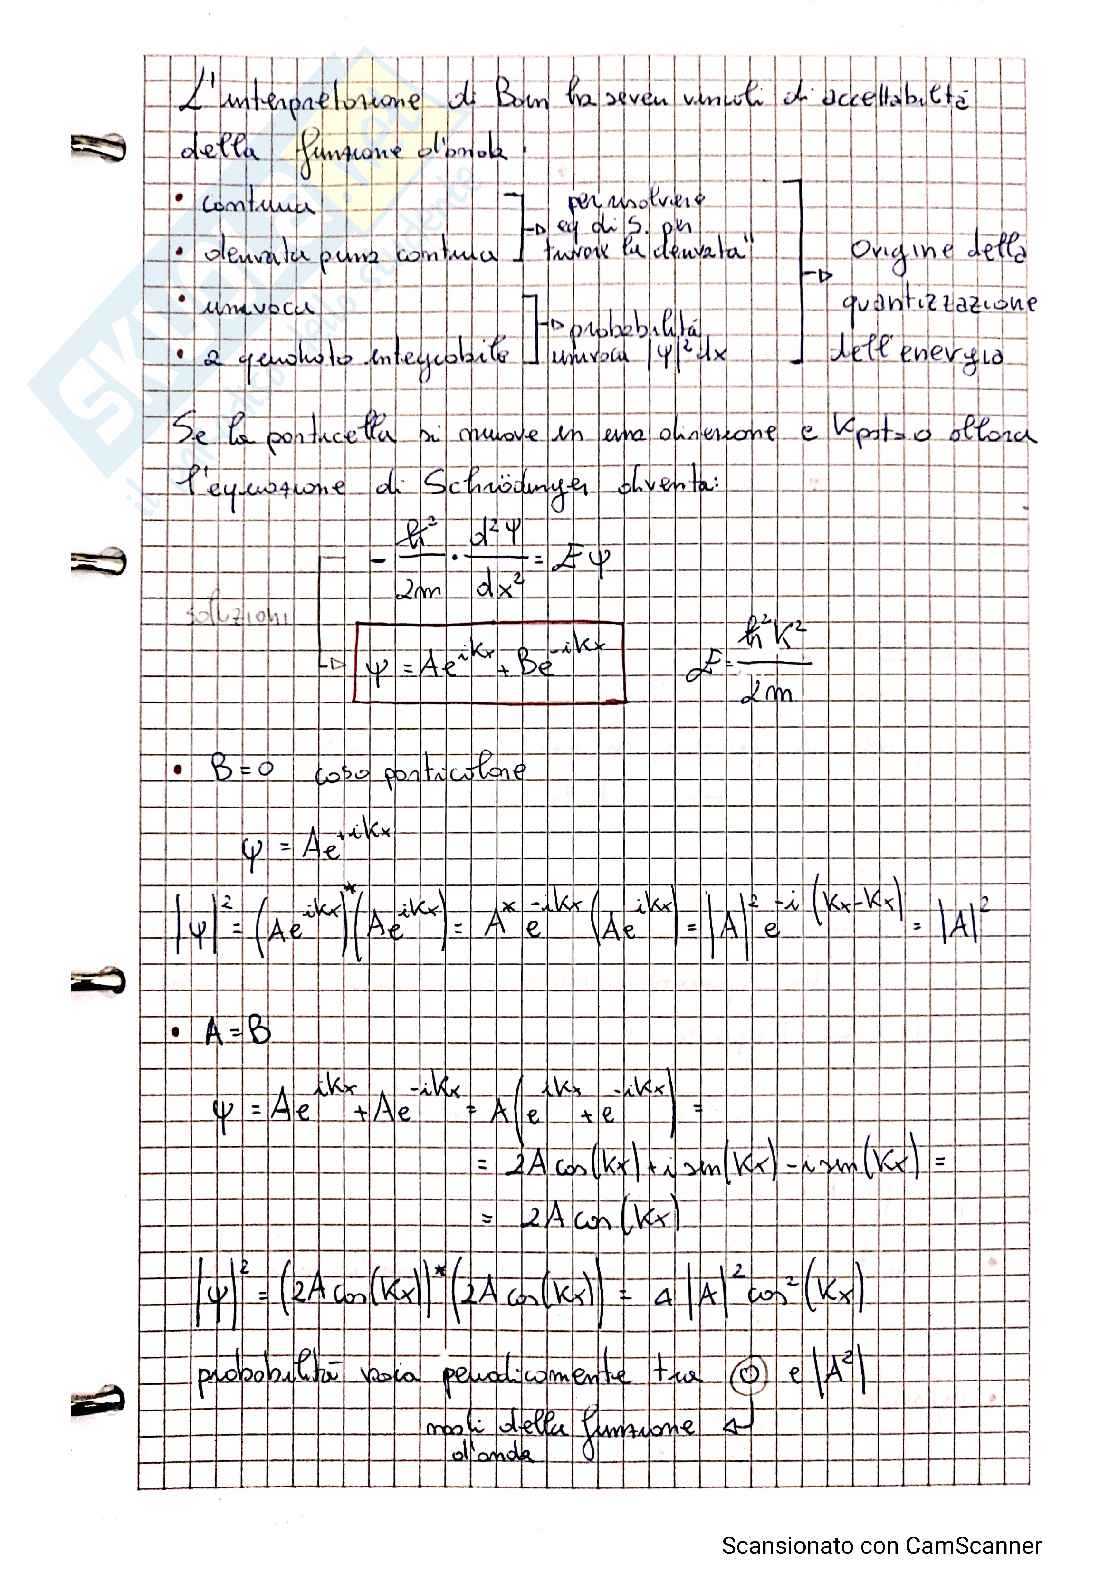 L'interpretazione di Born ha severi vincoli di accettabilità
della funzione d'onda.
• continua
• derivata prima continua
per risolvere
eq di S. per
trovare la derivata"
• univoca
• a quadrato integrabile
probabilità
univoca |ψ|² dx
Origine della
quantizzazione
dell'energia
Se la particella si muove in una direzione e Kpot=0 allora
l'equazione di Schrödinger diventa:
- ℏ²/2m · d²ψ/dx² = Eψ
soluzioni
ψ = Ae^ikx + Be^-ikx
E = ℏ²K²/2m
• B=0 caso particolare
ψ = Ae^+ikx
|ψ|² = (Ae^ikx)*(Ae^ikx) = A* e^-ikx (Ae^ikx) = |A|² e^-i(Kx-Kx) = |A|²
• A=B
ψ = Ae^ikx + Ae^-ikx = A(e^ikx + e^-ikx) =
= 2A cos(Kx) + i sen(Kx) - i sen(Kx) =
= 2A cos(Kx)
|ψ|² = (2A cos(Kx))* (2A cos(Kx)) = 4|A|² cos²(Kx)
probabilità varia periodicamente tra 0 e |A²|
nodi della funzione
d'onda
Scansionato con CamScanner